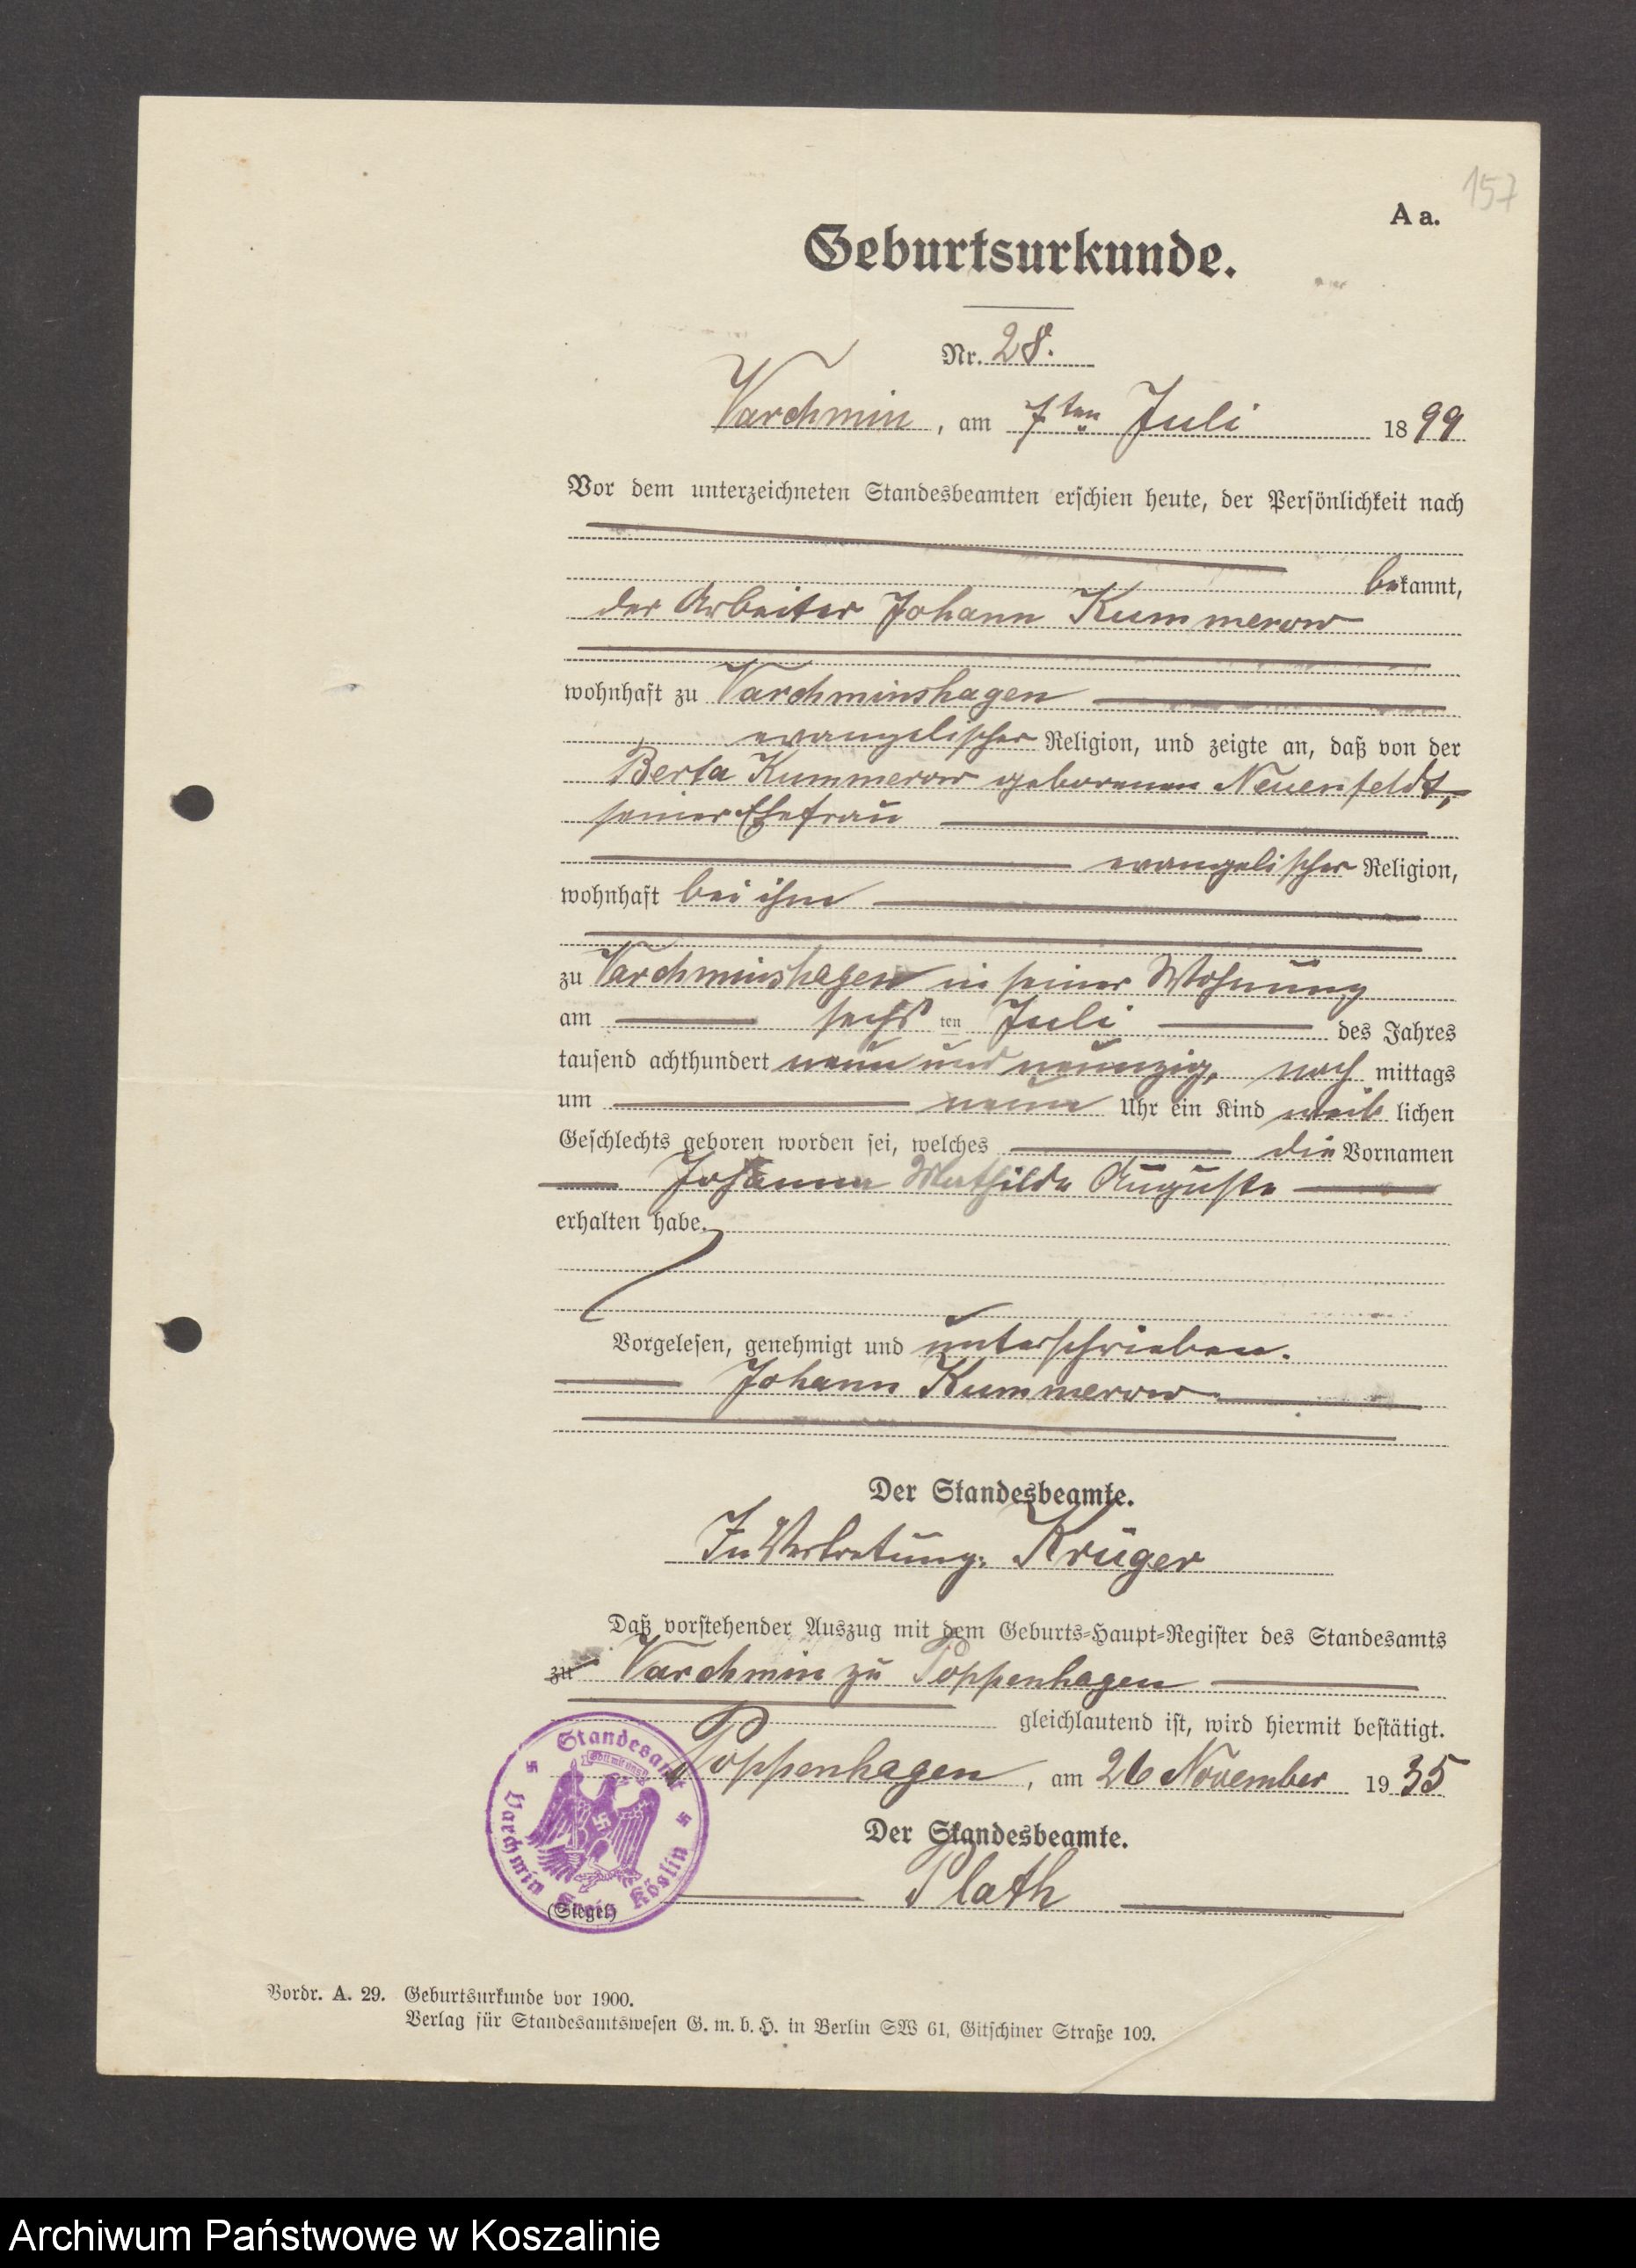 157
A a.
Geburtsurkunde.
Nr. 28.
Varchmin, am 7ten Juli 1899
Vor dem unterzeichneten Standesbeamten erschien heute, der Persönlichkeit nach
bekannt,
der Arbeiter Johann Kummerow
wohnhaft zu Varchminshagen
evangelischer Religion, und zeigte an, daß von der
Berta Kummerow geborenen Neuenfeldt,
seiner Ehefrau
evangelischer Religion,
wohnhaft bei ihm
zu Varchminshagen in seiner Wohnung
am sechs ten Juli des Jahres
tausend achthundert neun und neunzig, nach mittags
um neun Uhr ein Kind weib lichen
Geschlechts geboren worden sei, welches die Vornamen
Johanna Mathilde Auguste
erhalten habe.
Vorgelesen, genehmigt und unterschrieben.
Johann Kummerow.
Der Standesbeamte.
In Vertretung: Krüger
Daß vorstehender Auszug mit dem Geburts-Haupt-Register des Standesamts
zu Varchmin zu Poppenhagen
gleichlautend ist, wird hiermit bestätigt.
Poppenhagen, am 26 November 1935
Der Standesbeamte.
Plath
Standesamt Varchmin Kreis Köslin
(Siegel)
Vordr. A. 29. Geburtsurkunde vor 1900.
Verlag für Standesamtswesen G. m. b. H. in Berlin SW 61, Gitschiner Straße 109.
Archiwum Państwowe w Koszalinie